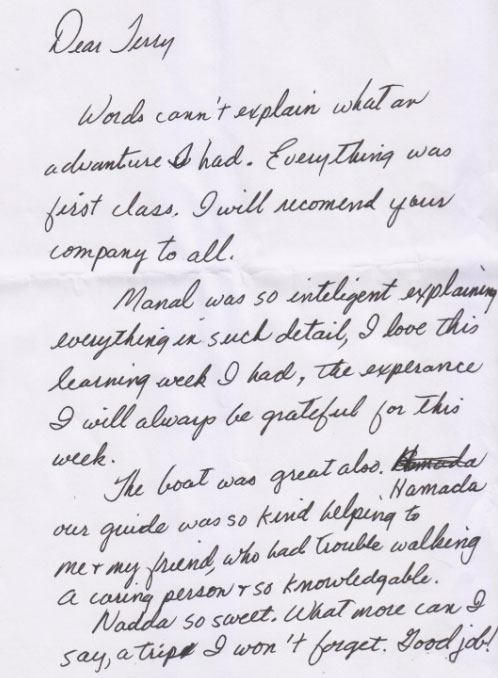 Dear Terry
Words cann't explain what an
advanture I had. Everything was
first class. I will recomend your
company to all.
Manal was so inteligent explaining
everything in such detail, I love this
learning week I had, the experance
I will always be grateful for this
week.
The boat was great also. Hamada
Hamada
our guide was so kind helping to
me + my friend, who had trouble walking
A caring person + so knowledgable.
Nadda so sweet. What more can I
say, a trip I won't forget. Good job!